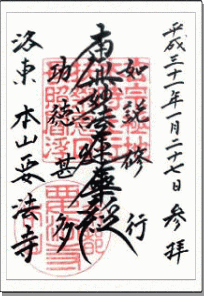 平成三十一年一月二十七日 参拝
如説修行
南無妙法蓮華経
功徳甚多
洛東 本山要法寺